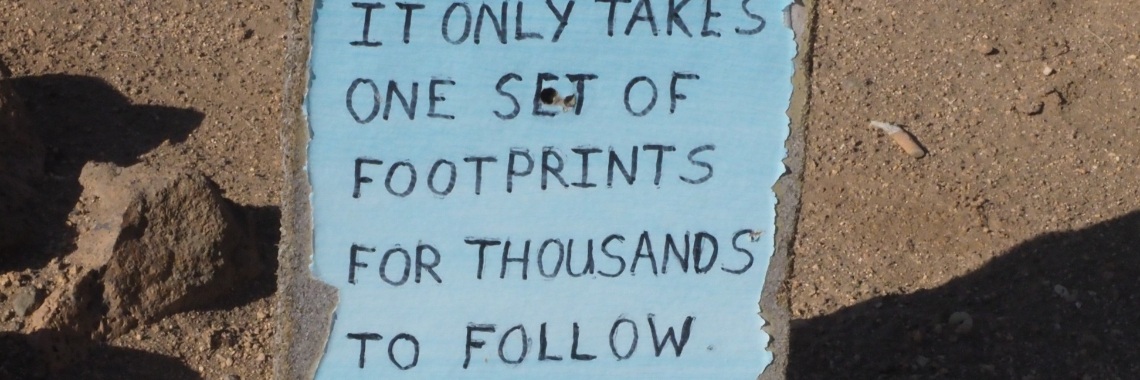 IT ONLY TAKES
ONE SET OF
FOOTPRINTS
FOR THOUSANDS
TO FOLLOW.